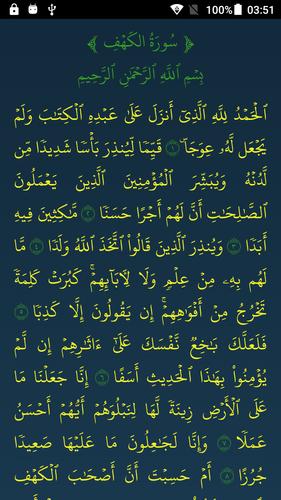 100% 03:51
﴿ سُورَةُ الكَهْفِ ﴾
بِسْمِ اللَّهِ الرَّحْمَٰنِ الرَّحِيمِ
ٱلْحَمْدُ لِلَّهِ ٱلَّذِىٓ أَنزَلَ عَلَىٰ عَبْدِهِ ٱلْكِتَٰبَ وَلَمْ
يَجْعَل لَّهُۥ عِوَجَاۜ ١ قَيِّمًا لِّيُنذِرَ بَأْسًا شَدِيدًا مِّن
لَّدُنْهُ وَيُبَشِّرَ ٱلْمُؤْمِنِينَ ٱلَّذِينَ يَعْمَلُونَ
ٱلصَّٰلِحَٰتِ أَنَّ لَهُمْ أَجْرًا حَسَنًا ٢ مَّٰكِثِينَ فِيهِ
أَبَدًا ٣ وَيُنذِرَ ٱلَّذِينَ قَالُوا۟ ٱتَّخَذَ ٱللَّهُ وَلَدًا ٤ مَّا
لَهُم بِهِۦ مِنْ عِلْمٍ وَلَا لِءَابَآئِهِمْ ۚ كَبُرَتْ كَلِمَةً
تَخْرُجُ مِنْ أَفْوَٰهِهِمْ ۚ إِن يَقُولُونَ إِلَّا كَذِبًا ٥
فَلَعَلَّكَ بَٰخِعٌ نَّفْسَكَ عَلَىٰٓ ءَاثَٰرِهِمْ إِن لَّمْ
يُؤْمِنُوا۟ بِهَٰذَا ٱلْحَدِيثِ أَسَفًا ٦ إِنَّا جَعَلْنَا مَا
عَلَى ٱلْأَرْضِ زِينَةً لَّهَا لِنَبْلُوَهُمْ أَيُّهُمْ أَحْسَنُ
عَمَلًا ٧ وَإِنَّا لَجَٰعِلُونَ مَا عَلَيْهَا صَعِيدًا
جُرُزًا ٨ أَمْ حَسِبْتَ أَنَّ أَصْحَٰبَ ٱلْكَهْفِ